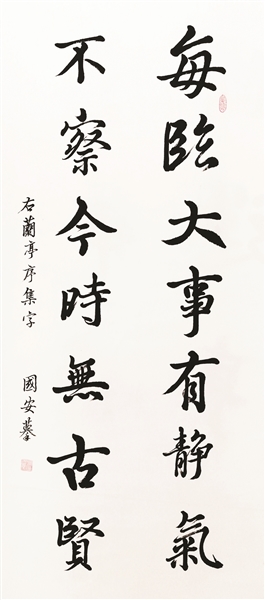 每臨大事有静氣
不察今時無古賢
右蘭亭序集字
國安摹